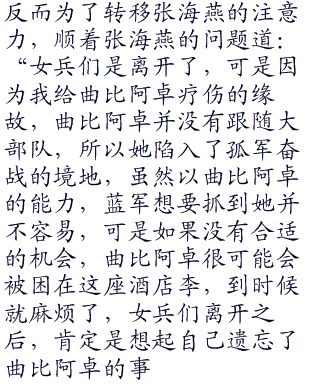 反而为了转移张海燕的注意
力，顺着张海燕的问题道：
“女兵们是离开了，可是因
为我给曲比阿卓疗伤的缘
故，曲比阿卓并没有跟随大
部队，所以她陷入了孤军奋
战的境地，虽然以曲比阿卓
的能力，蓝军想要抓到她并
不容易，可是如果没有合适
的机会，曲比阿卓很可能会
被困在这座酒店李，到时候
就麻烦了，女兵们离开之
后，肯定是想起自己遗忘了
曲比阿卓的事